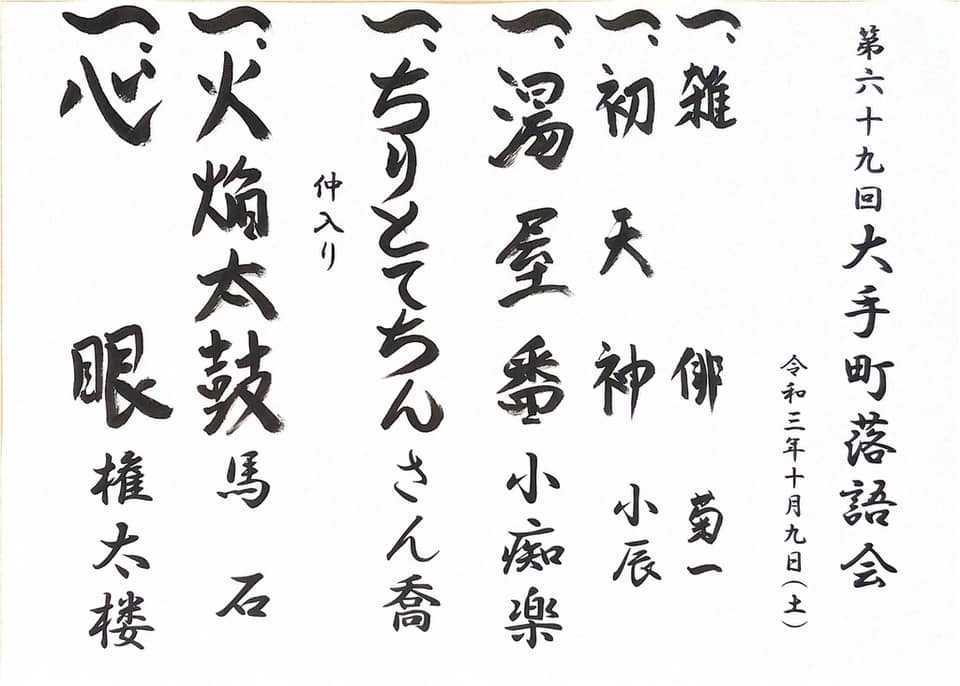 第六十九回大手町落語会
令和三年十月九日(土)
一、雑俳 菊一
一、初天神 小辰
一、湯屋番 小痴楽
一、ちりとてちん さん喬
仲入り
一、火焔太鼓 馬石
一、心眼 権太楼